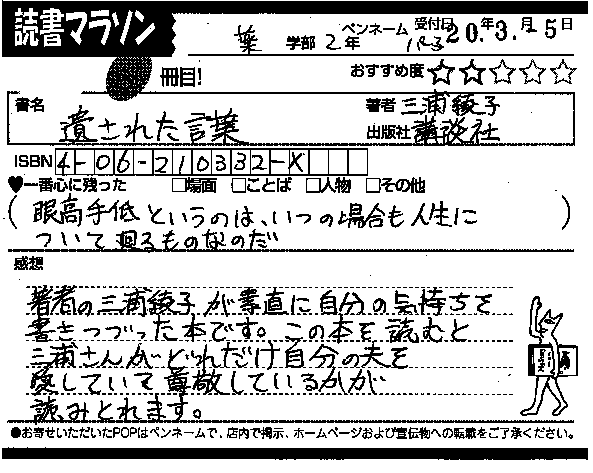 読書マラソン
薬 学部 2年 ペンネーム 受付日 20.年3.月25日
冊目! おすすめ度☆☆☆☆☆
書名 遺された言葉 著者 三浦綾子
出版社 講談社
ISBN 4-06-210332-X
♥一番心に残った □場面 □ことば □人物 □その他
(眼高手低というのは、いつの場合も人生に
ついて廻るものなのだ)
感想
著者の三浦綾子が素直に自分の気持ちを
書きつづった本です。この本を読むと
三浦さんがどれだけ自分の夫を
愛していて尊敬しているかが
読みとれます。
●お寄せいただいたPOPはペンネームで、店内で掲示、ホームページおよび宣伝物への転載をご了承ください。